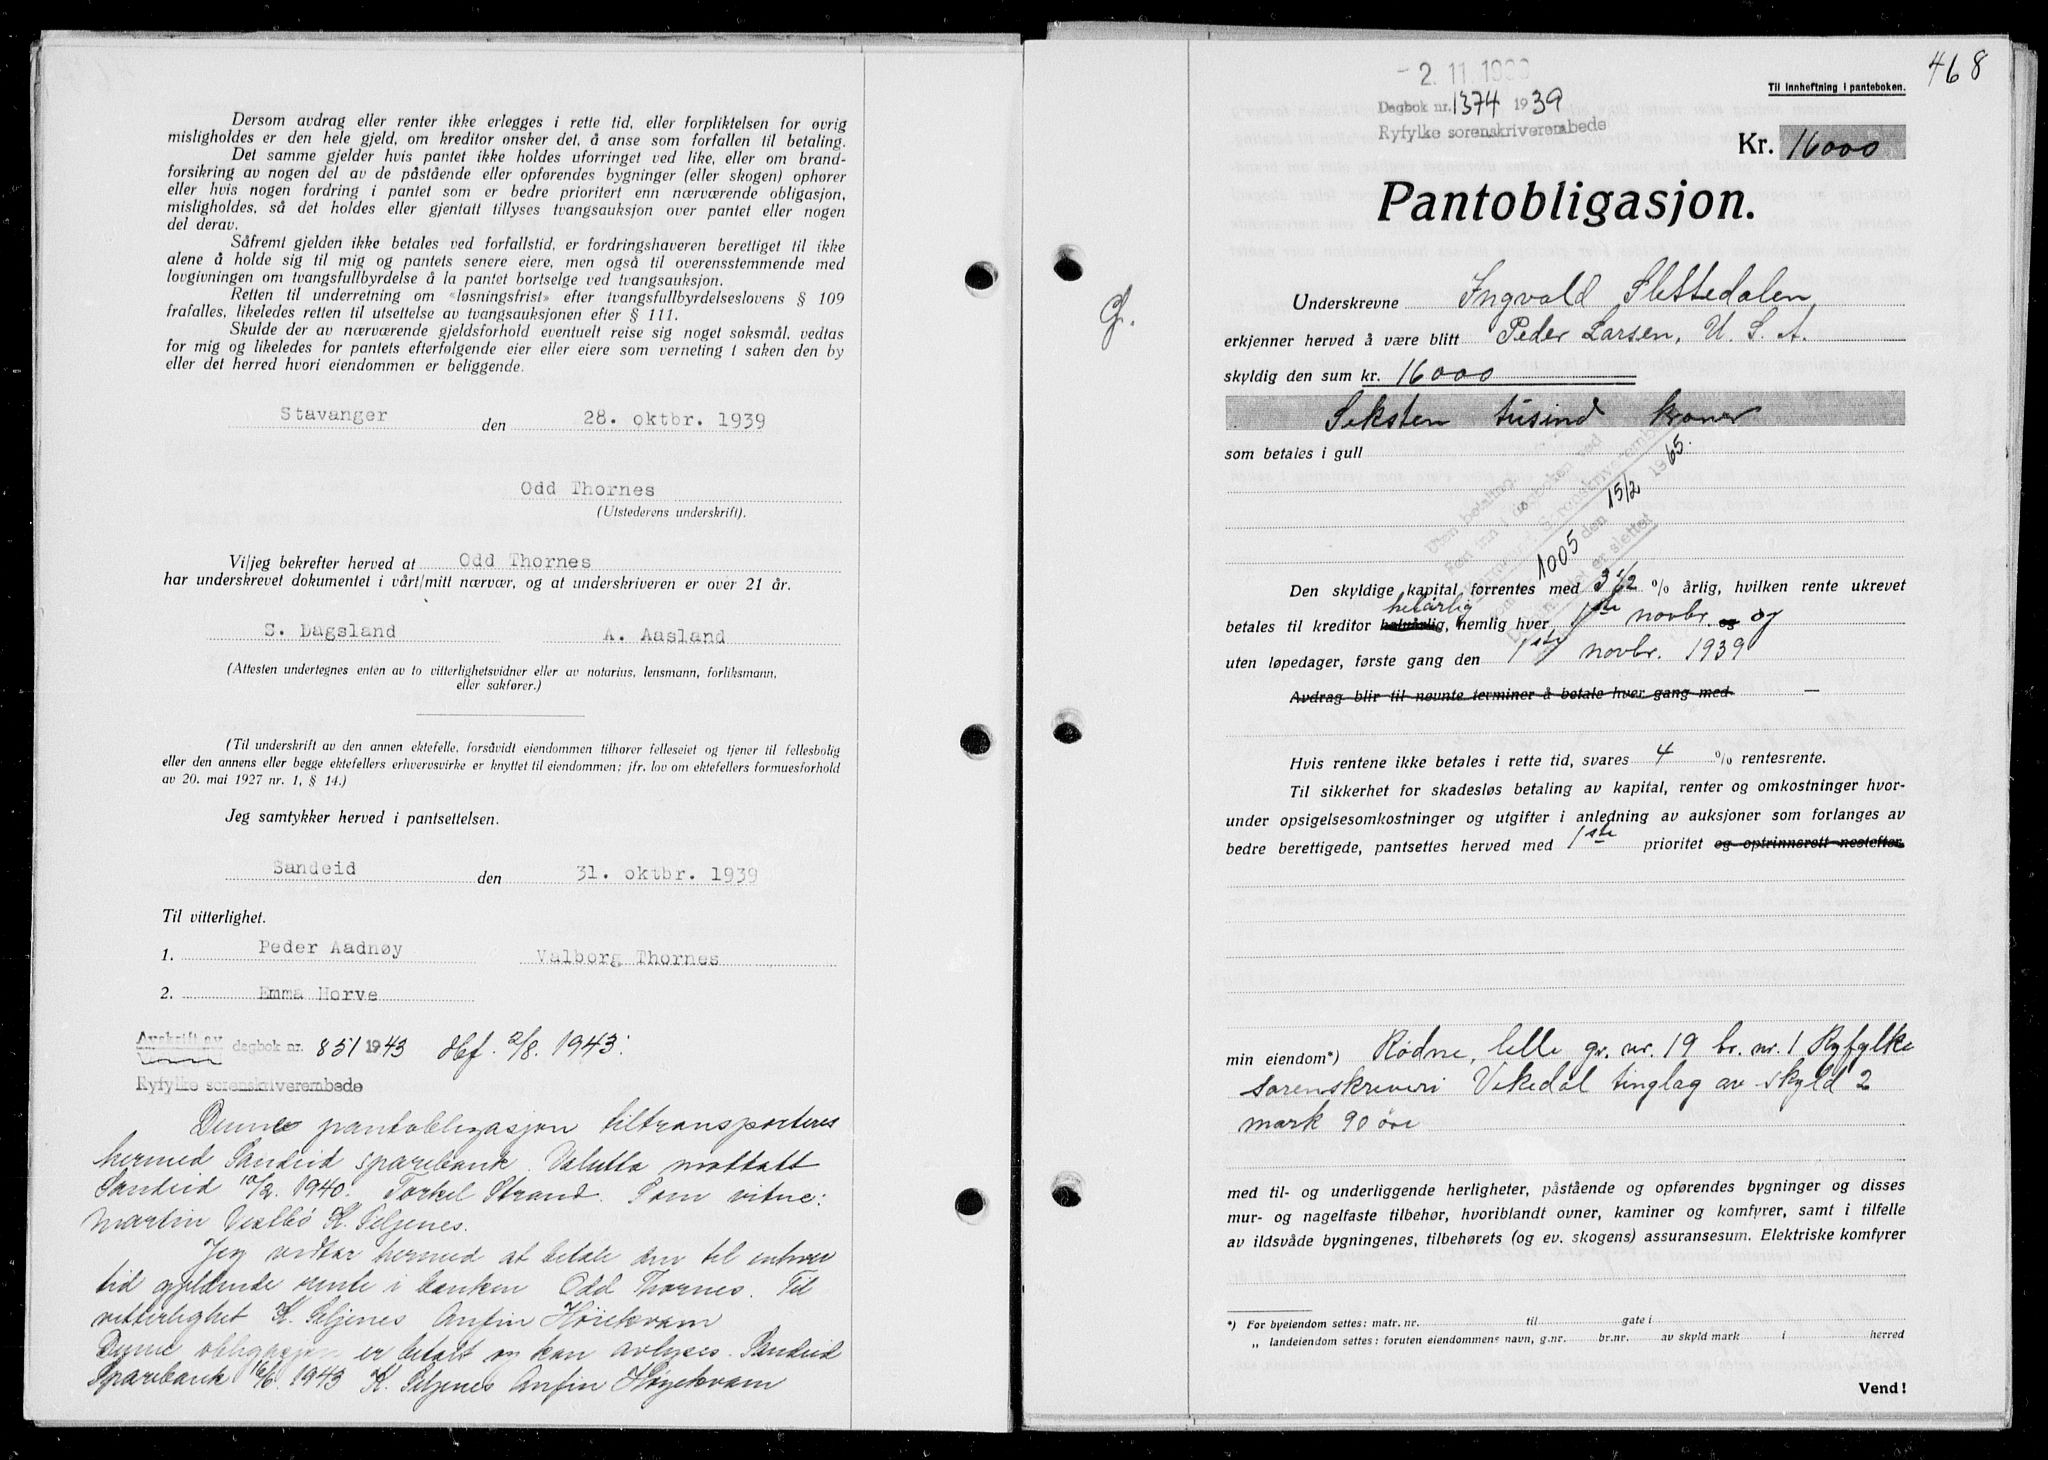 Dersom avdrag eller renter ikke erlegges i rette tid, eller forpliktelsen for øvrig
misligholdes er den hele gjeld, om kreditor ønsker det, å anse som forfallen til betaling.
Det samme gjelder hvis pantet ikke holdes uforringet ved like, eller om brand-
forsikring av nogen del av de påstående eller opførendes bygninger (eller skogen) ophører
eller hvis nogen fordring i pantet som er bedre prioritert enn nærværende obligasjon,
misligholdes, så det holdes eller gjentatt tillyses tvangsauksjon over pantet eller nogen
del derav.
Såfremt gjelden ikke betales ved forfallstid, er fordringshaveren berettiget til ikke
alene å holde sig til mig og pantets senere eiere, men også til overensstemmende med
lovgivningen om tvangsfullbyrdelse å la pantet bortselge ved tvangsauksjon.
Retten til underretning om «løsningsfrist» efter tvangsfullbyrdelseslovens § 109
frafalles, likeledes retten til utsettelse av tvangsauksjonen efter § 111.
Skulde der av nærværende gjeldsforhold eventuelt reise sig noget søksmål, vedtas
for mig og likeledes for pantets efterfølgende eier eller eiere som verneting i saken den by
eller det herred hvori eiendommen er beliggende.
Stavanger den 28. oktbr. 1939
Odd Thornes
(Utstederens underskrift).
Vi/jeg bekrefter herved at Odd Thornes
har underskrevet dokumentet i vårt/mitt nærvær, og at underskriveren er over 21 år.
S. Dagsland A. Aasland
(Attesten undertegnes enten av to vitterlighetsvidner eller av notarius, lensmann, forliksmann,
eller sakfører.)
(Til underskrift av den annen ektefelle, forsåvidt eiendommen tilhører felleseiet og tjener til fellesbolig
eller den annens eller begge ektefellers erhvervsvirke er knyttet til eiendommen; jfr. lov om ektefellers formuesforhold
av 20. mai 1927 nr. 1, § 14.)
Jeg samtykker herved i pantsettelsen.
Sandeid den 31. oktbr. 1939
Til vitterlighet.
1. Peder Aadnøy Valborg Thornes
2. Emma Horve
Avskrift av dagbok nr. 851 1943 Hef. 2/8. 1943.
Ryfylke sorenskriverembede
Denne pantobligasjon tiltransporteres
hermed Sandeid sparebank. Valutta mottatt
Sandeid 10/2. 1940. Torkel Strand. Som vitne:
Martin Vestbö K. Seljenes.
Jeg vedtar hermed at betale den til enhver
tid gjeldende rente i banken Odd Thornes. Til
vitterlighet K. Seljenes Anfin Höiekvam
Denne obligasjon er betalt og kan avlyses. Sandeid
Sparebank 16/6. 1943 K. Seljenes Anfin Høyekvam
468
- 2. 11. 19
Til innheftning i panteboken.
Dagbok nr. 1374 1939
Ryfylke sorenskriverembede
Kr. 16000
Pantobligasjon.
G.
Underskrevne Ingvald Slettedalen
erkjenner herved å være blitt Peder Larsen, U. S. A.
skyldig den sum kr. 16000
Seksten tusind kroner
som betales i gull
Uten betaling.
Ført inn i dagboken ved
sorenskriverembete
som 1005 den 15/2 1965.
Dokumentet er slettet
Den skyldige kapital forrentes med 3 1/2 % årlig, hvilken rente ukrevet
helårlig
betales til kreditor halvårlig, nemlig hver 1ste novbr. og og
uten løpedager, første gang den 1ste novbr. 1939
Avdrag blir til nevnte terminer å betale hver gang med —
Hvis rentene ikke betales i rette tid, svares 4 % rentesrente.
Til sikkerhet for skadesløs betaling av kapital, renter og omkostninger hvor-
under opsigelsesomkostninger og utgifter i anledning av auksjoner som forlanges av
bedre berettigede, pantsettes herved med 1ste prioritet og optrinnsrett nestefter
min eiendom*) Rödne, lille gr. nr. 19 br. nr. 1 Ryfylke
sorenskriveri Vikedal tinglag av skyld 2
mark 90 öre
med til- og underliggende herligheter, påstående og opførendes bygninger og disses
mur- og nagelfaste tilbehør, hvoriblandt ovner, kaminer og komfyrer, samt i tilfelle
av ildsvåde bygningenes, tilbehørets (og ev. skogens) assuransesum. Elektriske komfyrer
*) For byeiendom settes: matr. nr. til gate i
„ landeiendom settes: foruten eiendommens navn, g.nr. br.nr. av skyld mark i herred
Vend!